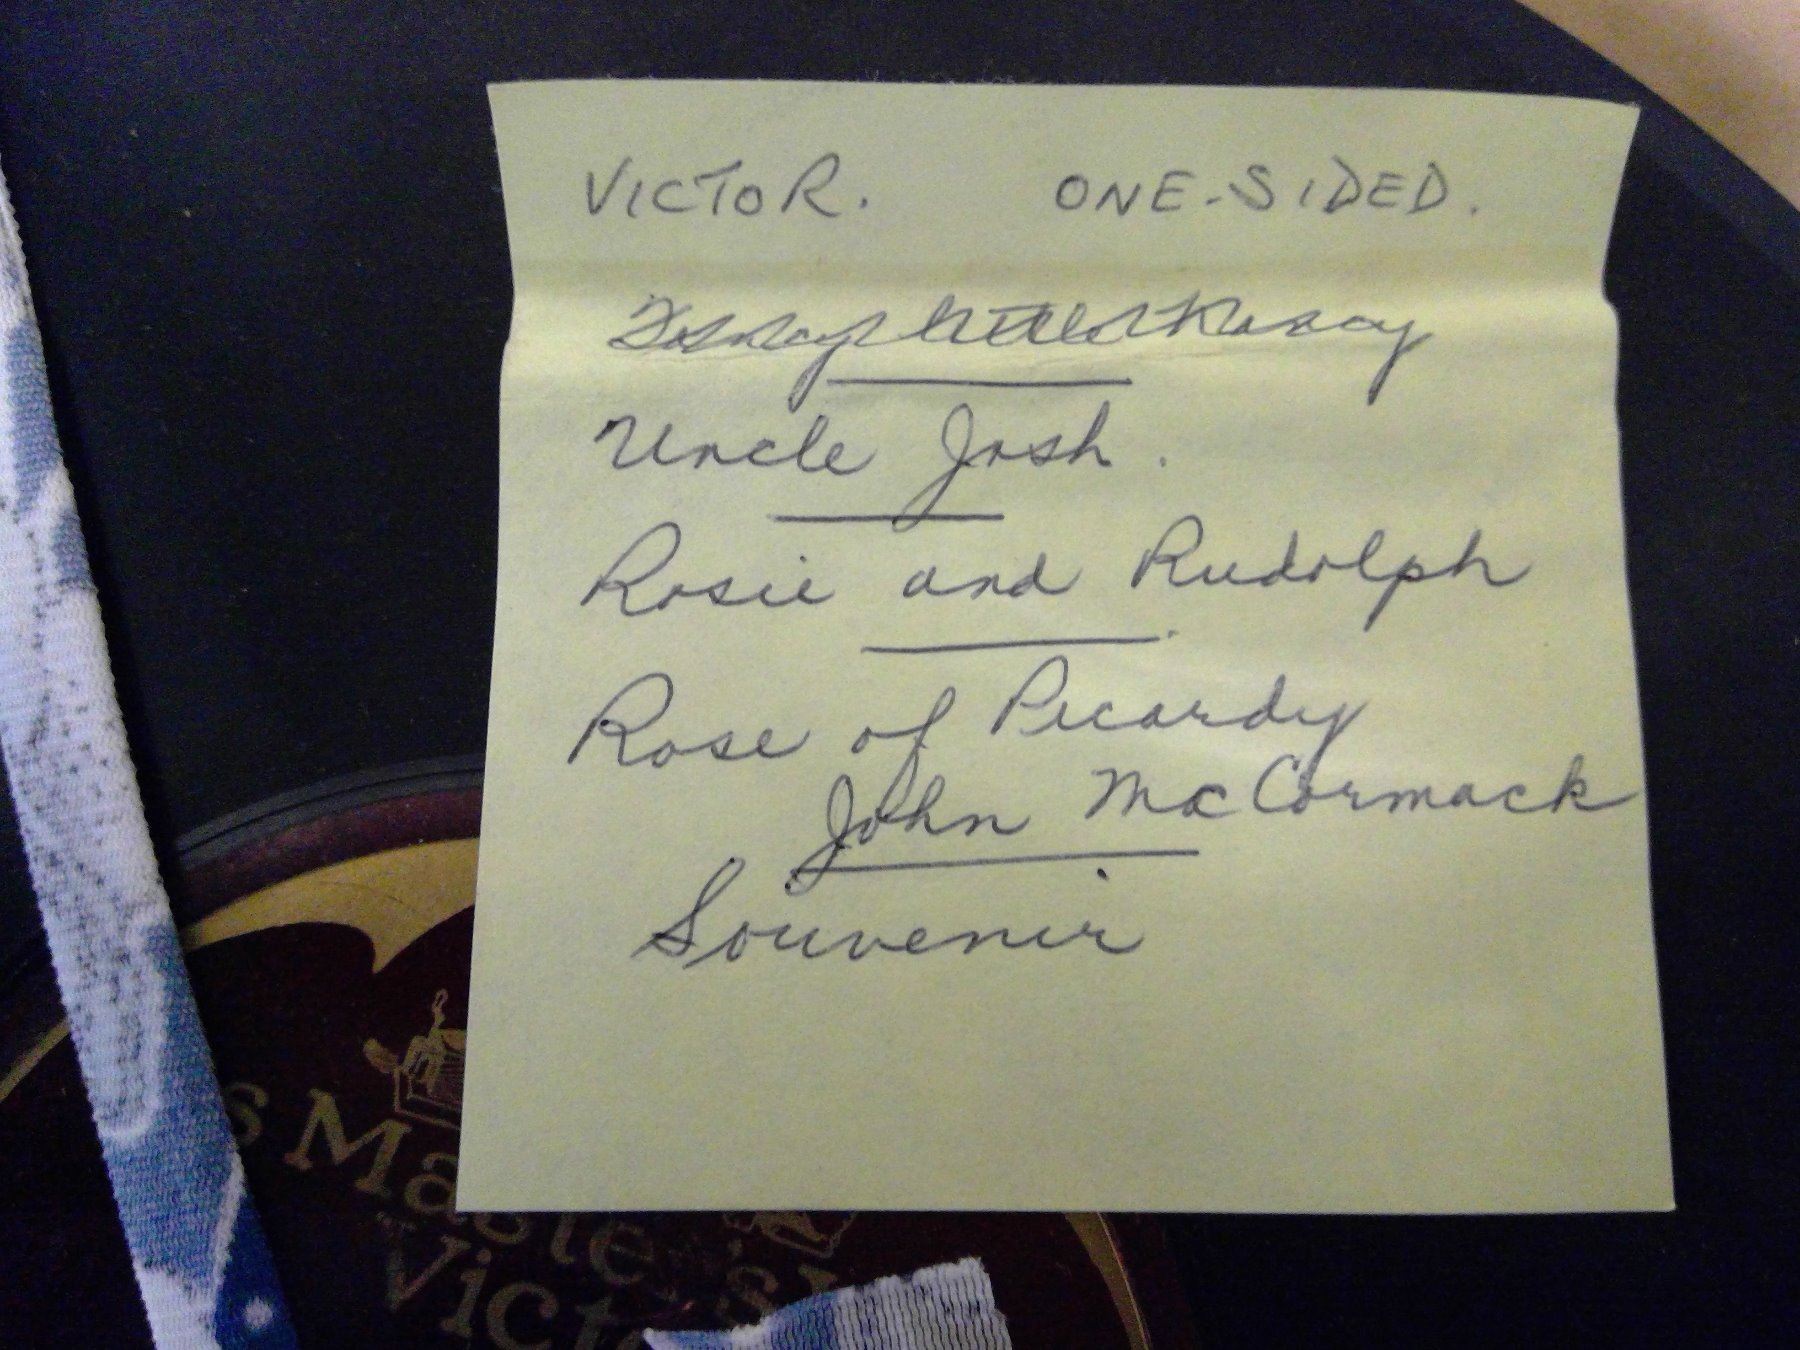 VICTOR. ONE-SIDED.
Uncle Josh.
Rosie and Rudolph
Rose of Picardy
John MacCormack
Souvenir
s Maste
Vict